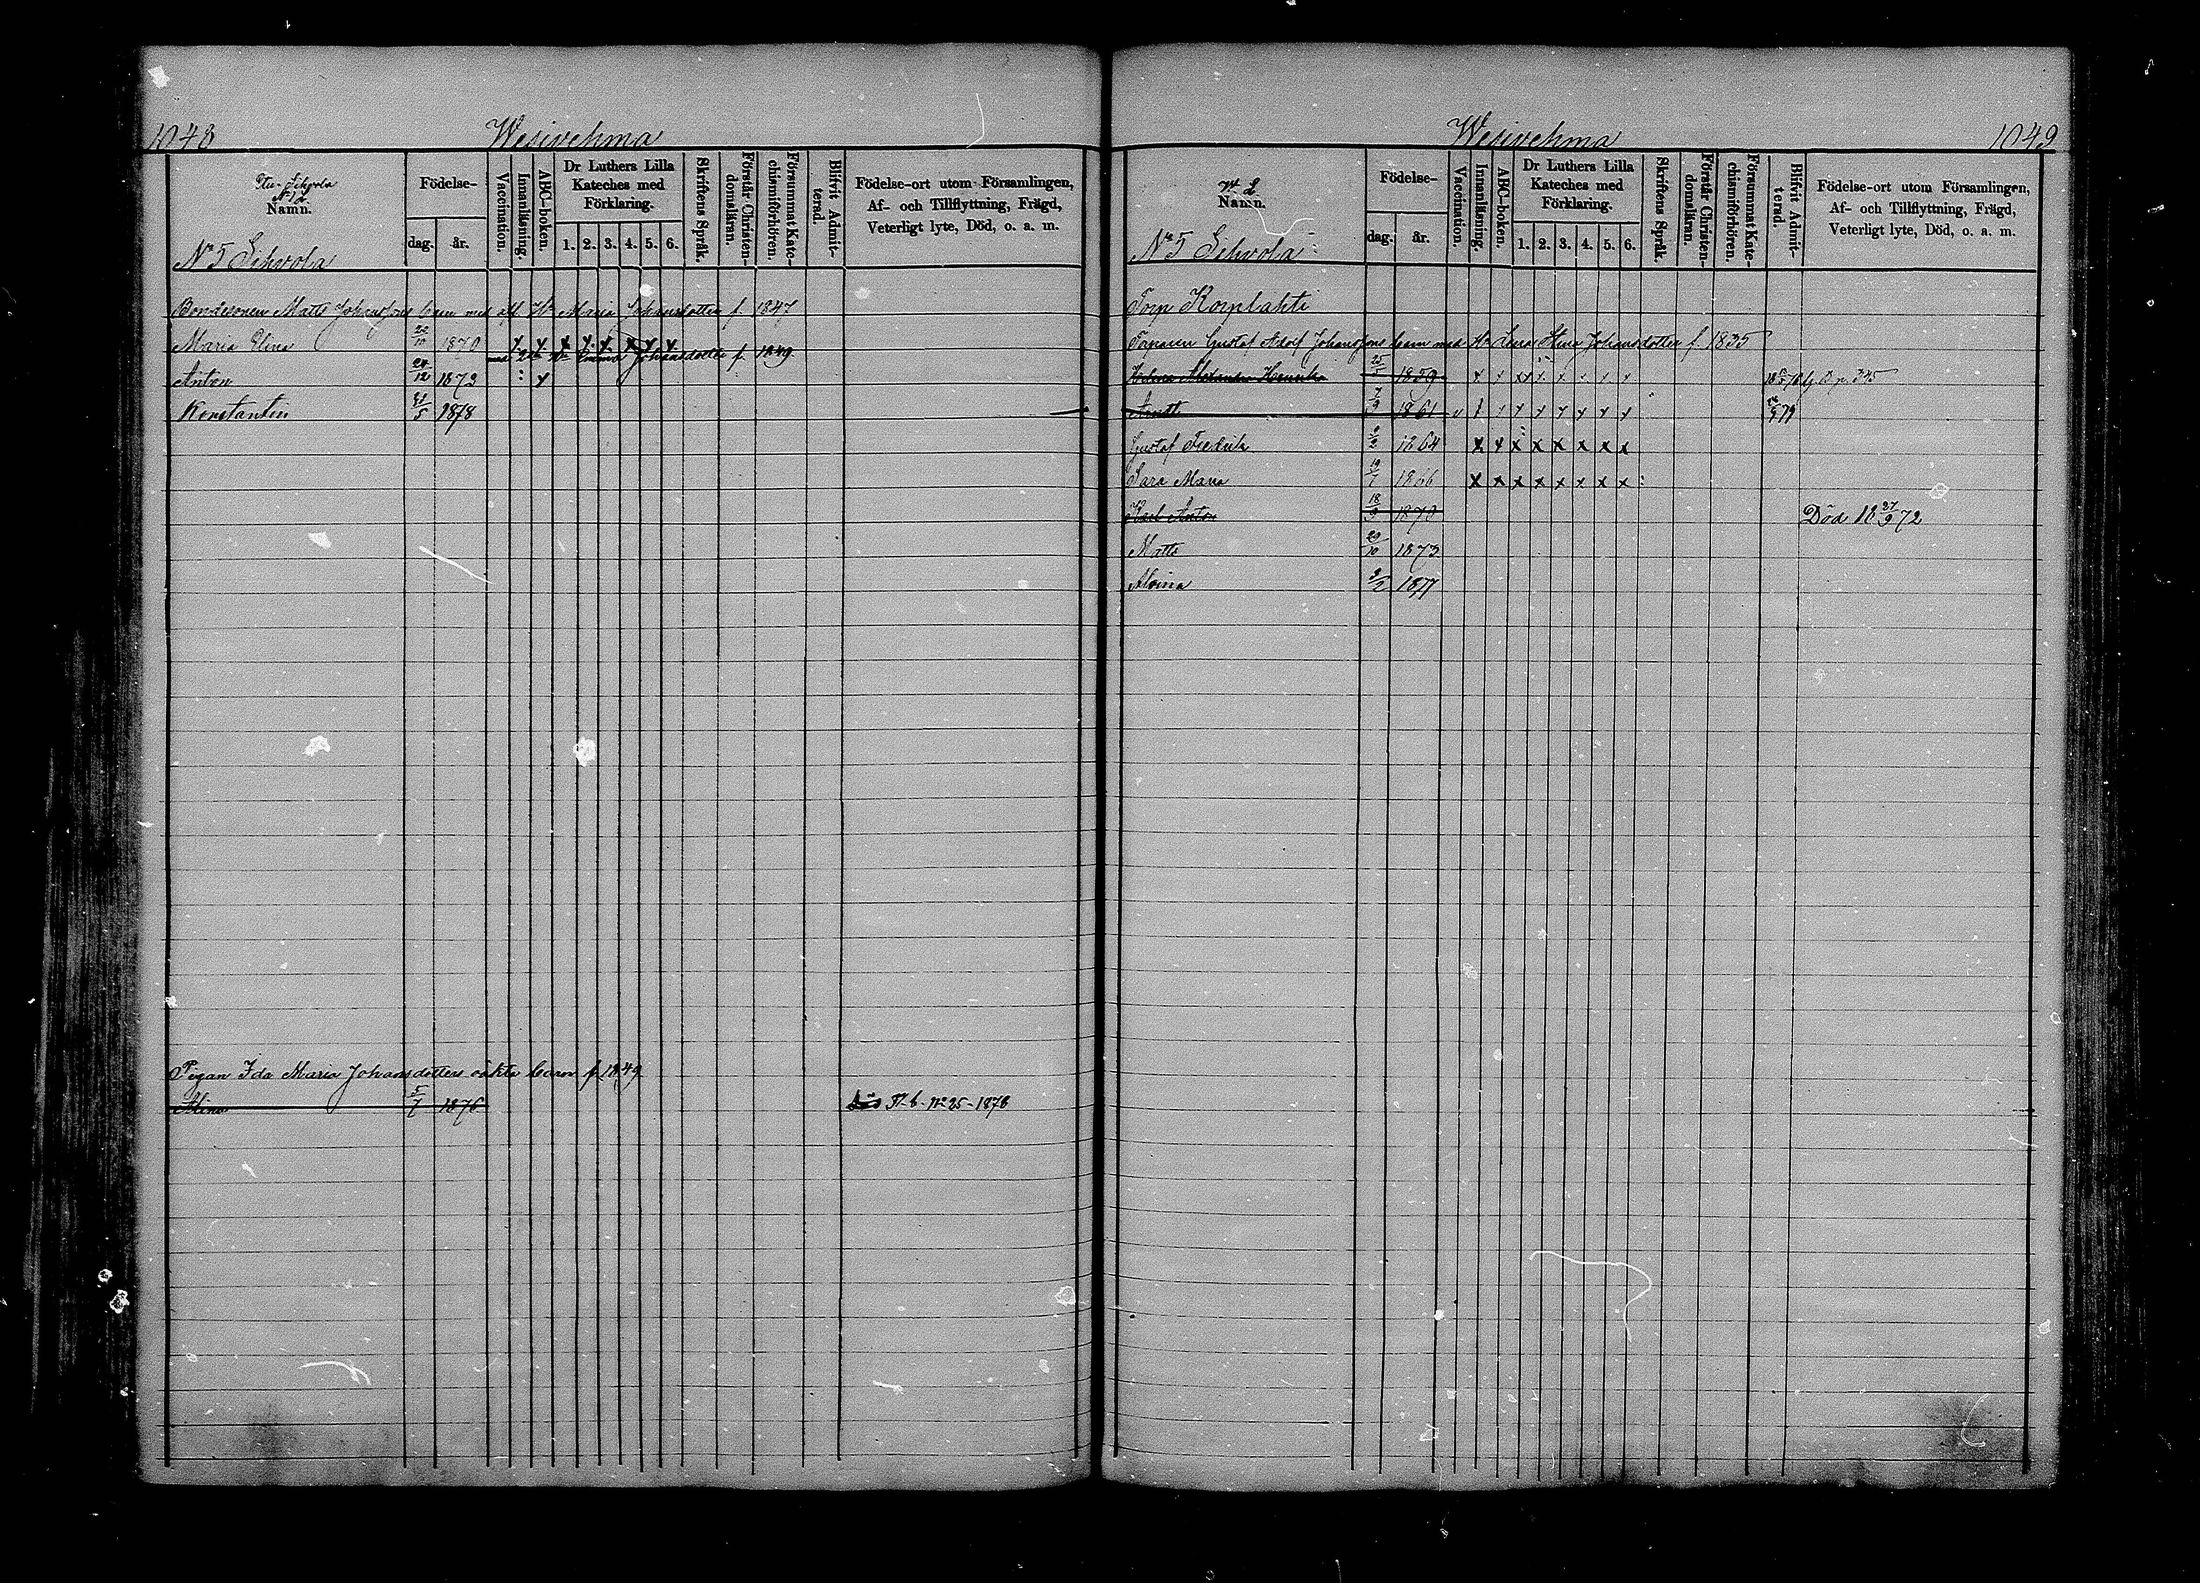 1048 Wesivehma
Namn.
Födelse-
dag. år.
Vaccination.
Innanläsning.
ABC-boken.
Dr Luthers Lilla Kateches med Förklaring.
1. 2. 3. 4. 5. 6.
Skriftens Språk.
Förstår Christendomsläran.
Försummat Katechismiförhören.
Blifvit Admitterad.
Födelse-ort utom Församlingen,
Af- och Tillflyttning, Frägd,
Veterligt lyte, Död, o. a. m.
No 5 Eskvola
Bondesonen Matts Johanssons barn med afl. Hu Maria Johansdotter f. 1847
Maria Elina 22/10 1870 x x x x x x x x
med 2dra Hu Emma Johansdotter f. 1849
Anton 24/12 1873 x
Konstantin 21/5 1878
Pigan Ida Maria Johansdotters oäkta barn f. 1849
Mina 5/7 1876 Fl. b. No 25-1878
Wesivehma 1049
No 2
Namn.
Födelse-
dag. år.
Vaccination.
Innanläsning.
ABC-boken.
Dr Luthers Lilla Kateches med Förklaring.
1. 2. 3. 4. 5. 6.
Skriftens Språk.
Förstår Christendomsläran.
Försummat Katechismiförhören.
Blifvit Admitterad.
Födelse-ort utom Församlingen,
Af- och Tillflyttning, Frägd,
Veterligt lyte, Död, o. a. m.
No 5 Eskvola
Torp Korplahti
Torparen Gustaf Adolf Johanssons barn med Hu Lena Stina Johansdotter f. 1835
Helena Alexandra Henrika 25/1 1859 p. 345
7/9 1861 79
Gustaf Fredrik 2/2 1864 x x x x x x x x
Sara Maria 19/7 1866 x x x x x x x x
Karl Anton 18/3 1870 Död 18 27/9 72
Matts 29/10 1873
Alvina 2/2 1877